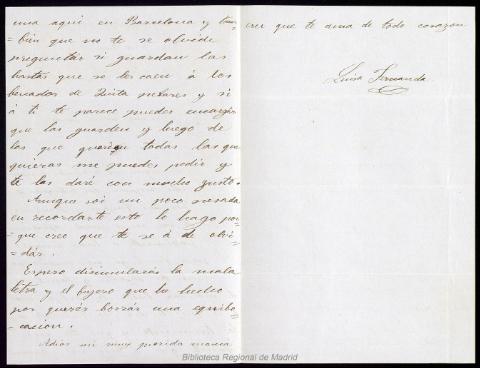 una aquí en Barcelona y tam-
-bien que no te se olvide
preguntar si guardan las
hastas que se les caen á los
de y si
á ti te parece puedes encargar
que las guarden y luego de
las que todas las que
quieras me puedes pedir y
te las daré con mucho gusto.
Aunque soi un poco pesada
en recordarte esto lo hago por-
-que creo que te se á de olvi-
-dár.
Espero disimularás la mala
letra y el que ha hecho
por querér borrár una equibo-
-cacion.
Adios mi muy querida
cree que te ama de todo corazon
Luisa Fernanda
Biblioteca Regional de Madrid